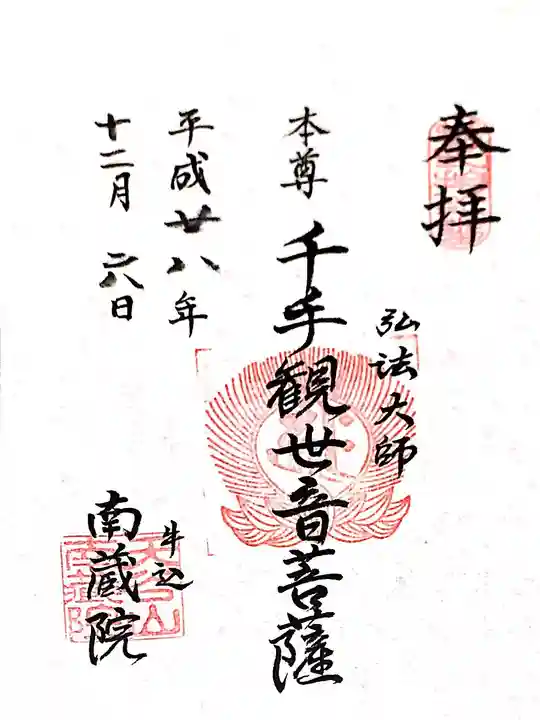 奉拝
弘法大師
本尊 千手観世音菩薩
平成廿八年
十二月 六日
牛込
南蔵院